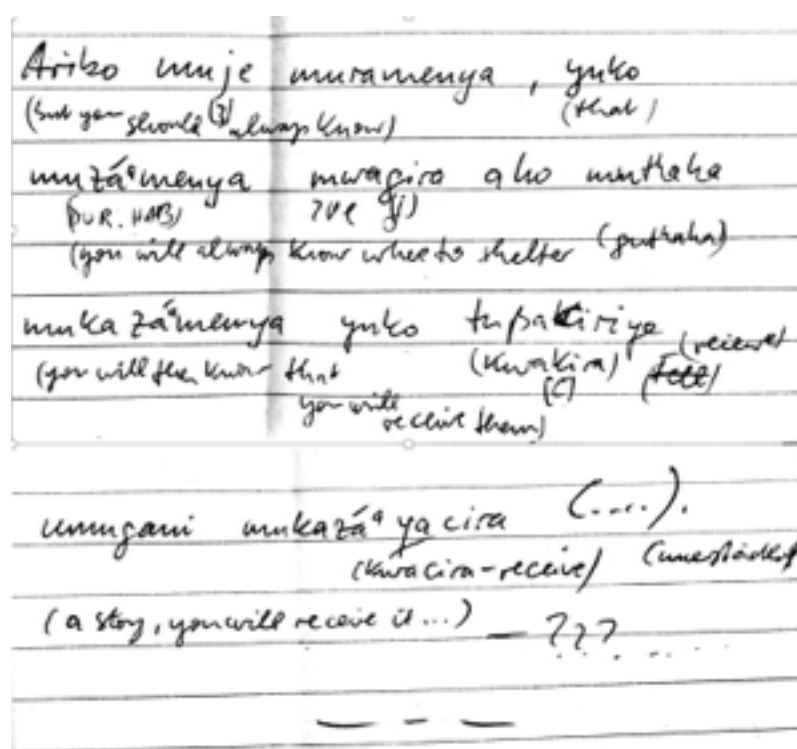 Ariko muje muramenya, yuko
(but you should (?) always know) (that)
muzáᵃmenya mwagira aho muthaha
(DUR. HAB) ?ve (j)
(you will always know where to shelter (guthaha)
muka záᵃmenya yuko tuβakiriye
(you will then know that (kwakira) (receive)
you will receive them) [C]
umugani mukazáᵃ yacira (....).
(kwacira-receive)
(a story, you will receive it...) — ???
— - —